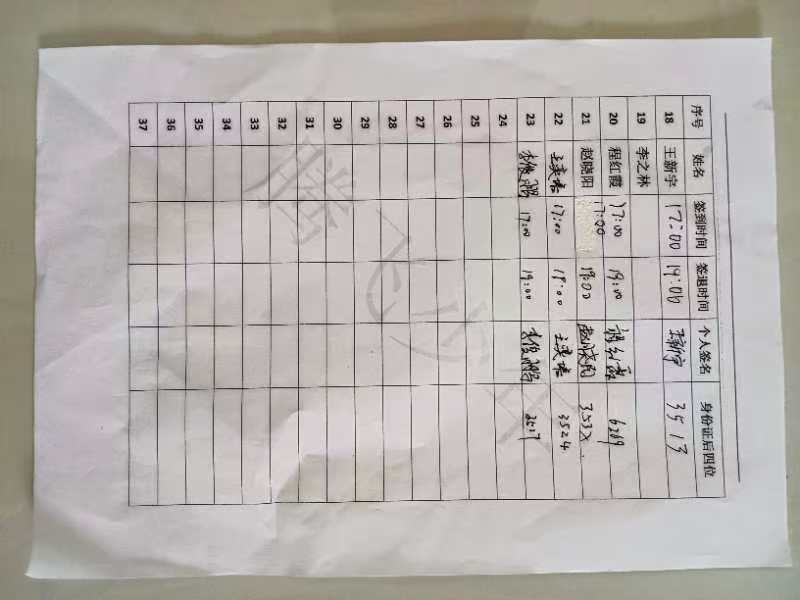 序号 姓名 签到时间 签退时间 个人签名 身份证后四位
18 王新宇 17:00 19:00 王新宇 3513
19 李之林
20 程红霞 17:00 19:00 程红霞 6269
21 赵晓阳 17:00 19:00 赵晓阳 353X
22 17:00 19:00 3524
23 李俊鹏 17:00 19:00 李俊鹏 3517
24
25
26
27
28
29
30
31
32
33
34
35
36
37
腾飞少年